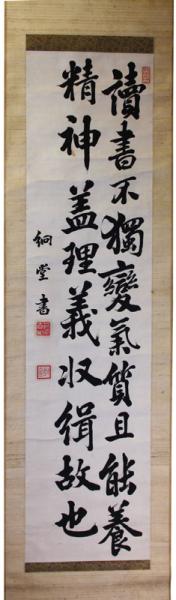 讀書不獨變氣質且能養
精神盖理義收緝故也
絅堂書